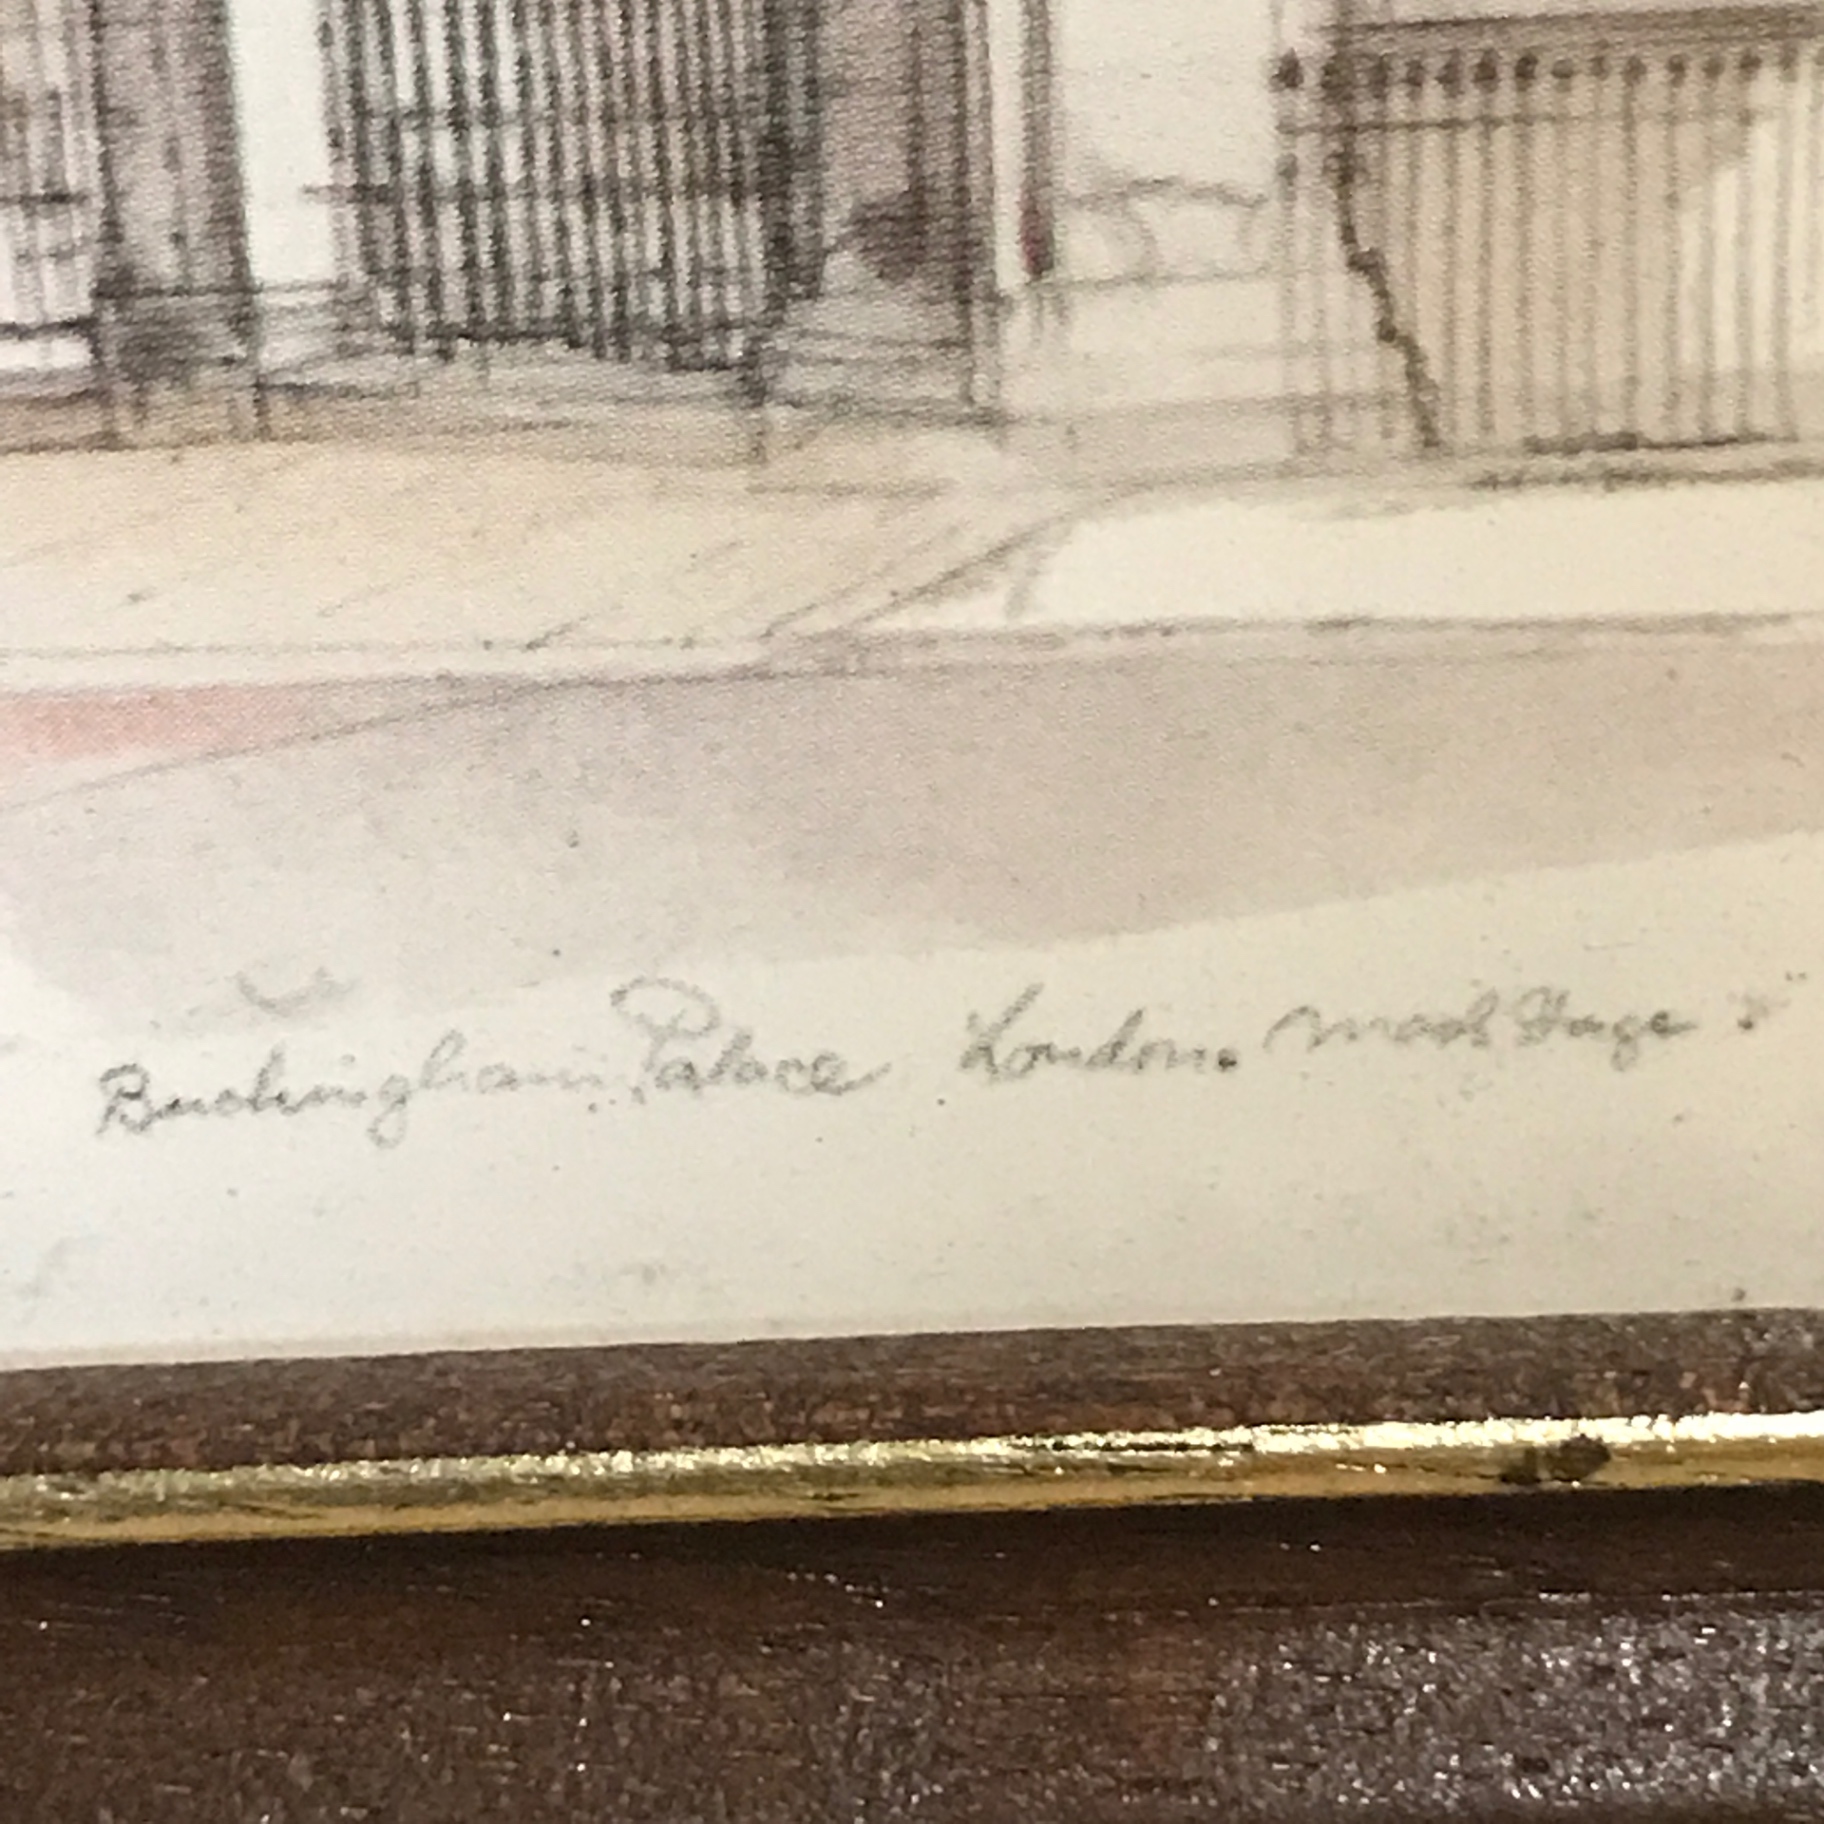 Buckingham Palace London. Mads Stage